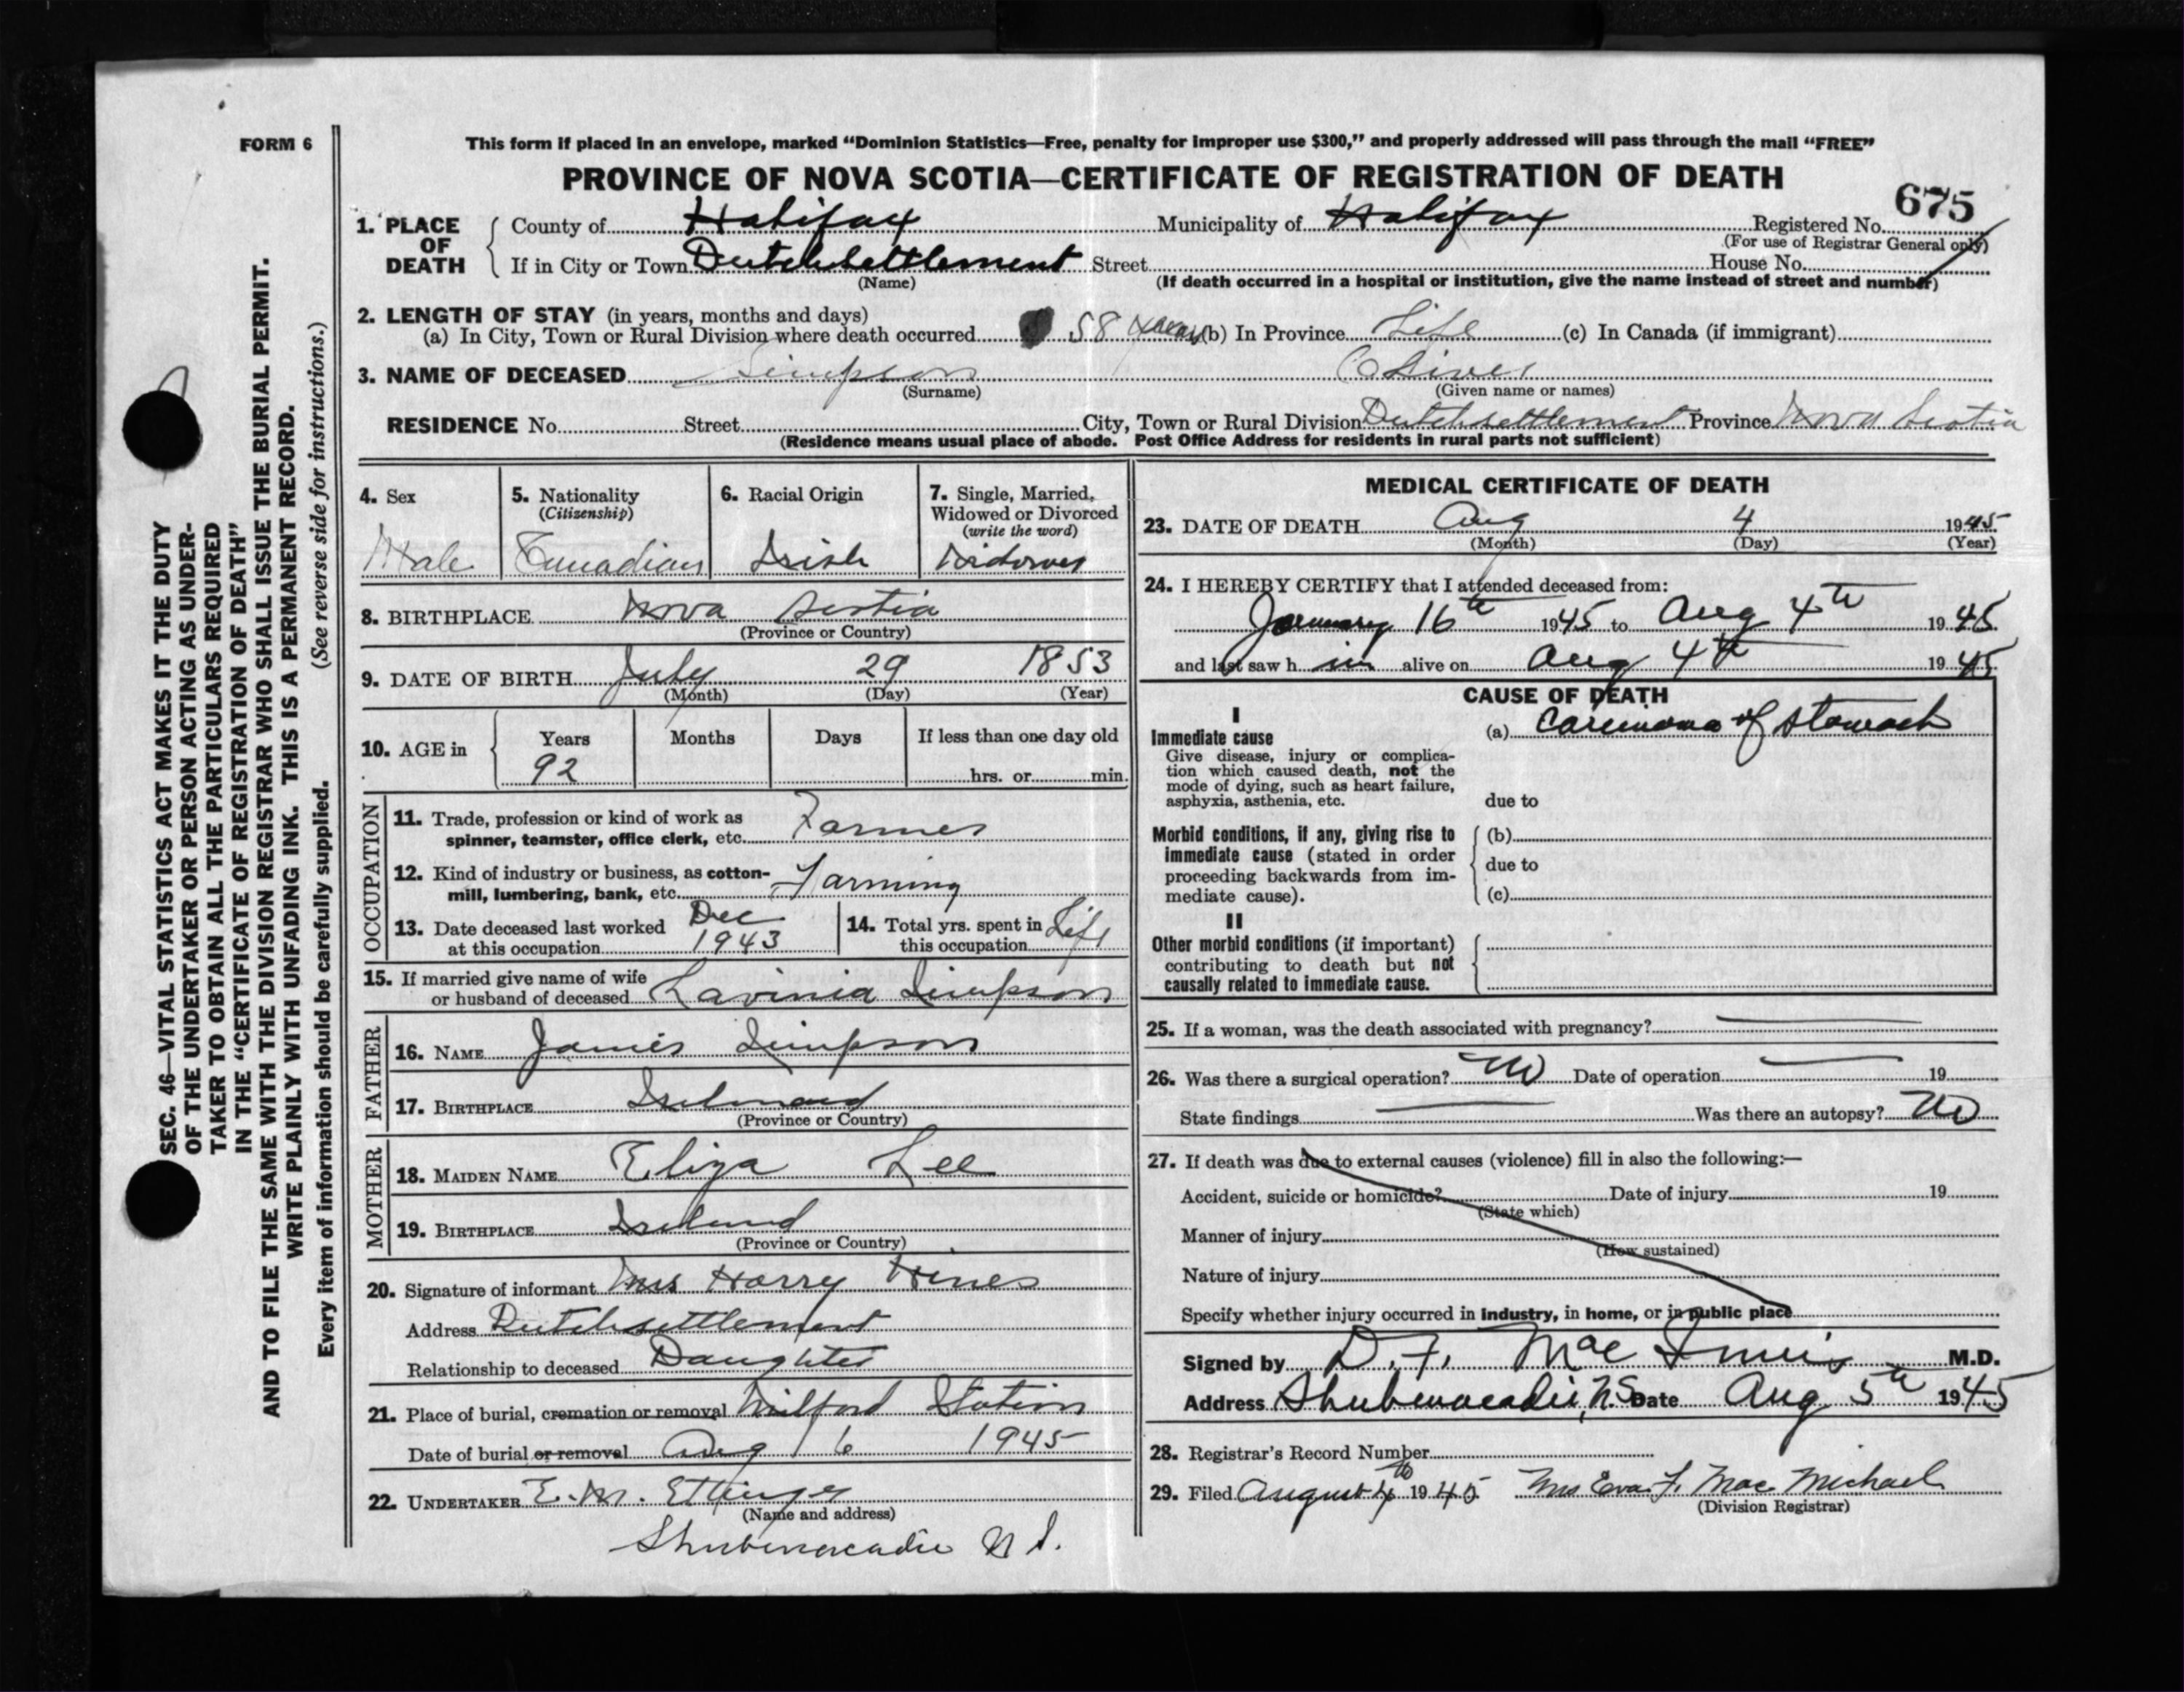 FORM 6
This form if placed in an envelope, marked “Dominion Statistics—Free, penalty for improper use $300,” and properly addressed will pass through the mail “FREE”
PROVINCE OF NOVA SCOTIA—CERTIFICATE OF REGISTRATION OF DEATH
675
1. PLACE OF DEATH { County of Halifax Municipality of Halifax Registered No.
(For use of Registrar General only)
If in City or Town Dutchsettlement Street House No.
(Name) (If death occurred in a hospital or institution, give the name instead of street and number)
2. LENGTH OF STAY (in years, months and days)
(a) In City, Town or Rural Division where death occurred 58 years (b) In Province Life (c) In Canada (if immigrant)
3. NAME OF DECEASED Simpson Oliver
(Surname) (Given name or names)
RESIDENCE No. Street City, Town or Rural Division Dutchsettlement Province Nova Scotia
(Residence means usual place of abode. Post Office Address for residents in rural parts not sufficient)
4. Sex Male
5. Nationality (Citizenship) Canadian
6. Racial Origin Irish
7. Single, Married, Widowed or Divorced (write the word) Widower
8. BIRTHPLACE Nova Scotia
(Province or Country)
9. DATE OF BIRTH July 29 1853
(Month) (Day) (Year)
10. AGE in { Years Months Days If less than one day old
92 hrs. or min.
OCCUPATION
11. Trade, profession or kind of work as
spinner, teamster, office clerk, etc. Farmer
12. Kind of industry or business, as cotton-
mill, lumbering, bank, etc. Farming
13. Date deceased last worked Dec
at this occupation 1943
14. Total yrs. spent in
this occupation Life
15. If married give name of wife
or husband of deceased Lavinia Simpson
FATHER
16. NAME James Simpson
17. BIRTHPLACE Ireland
(Province or Country)
MOTHER
18. MAIDEN NAME Eliza Lee
19. BIRTHPLACE Ireland
(Province or Country)
20. Signature of informant Mrs Harry Hines
Address Dutchsettlement
Relationship to deceased Daughter
21. Place of burial, cremation or removal Milford Station
Date of burial or removal Aug 6 1945
22. UNDERTAKER E. M. Ettinger
(Name and address)
Shubenacadie N S.
MEDICAL CERTIFICATE OF DEATH
23. DATE OF DEATH Aug 4 1945
(Month) (Day) (Year)
24. I HEREBY CERTIFY that I attended deceased from:
January 16th 1945 to Aug 4th 1945
and last saw h im alive on Aug 4th 1945
CAUSE OF DEATH
I
Immediate cause (a) Carcinoma of stomach
Give disease, injury or complica-
tion which caused death, not the
mode of dying, such as heart failure,
asphyxia, asthenia, etc. due to
Morbid conditions, if any, giving rise to (b)
immediate cause (stated in order due to
proceeding backwards from im-
mediate cause). (c)
II
Other morbid conditions (if important)
contributing to death but not
causally related to immediate cause.
25. If a woman, was the death associated with pregnancy?
26. Was there a surgical operation? No Date of operation 19
State findings Was there an autopsy? No
27. If death was due to external causes (violence) fill in also the following:—
Accident, suicide or homicide? Date of injury 19
(State which)
Manner of injury
(How sustained)
Nature of injury
Specify whether injury occurred in industry, in home, or in public place
Signed by D. F. MacInnis M.D.
Address Shubenacadie, N.S. Date Aug 5th 1945
28. Registrar's Record Number
29. Filed August 1945 Mrs Eva F. MacMichael
(Division Registrar)
SEC. 46—VITAL STATISTICS ACT MAKES IT THE DUTY
OF THE UNDERTAKER OR PERSON ACTING AS UNDER-
TAKER TO OBTAIN ALL THE PARTICULARS REQUIRED
IN THE “CERTIFICATE OF REGISTRATION OF DEATH”
AND TO FILE THE SAME WITH THE DIVISION REGISTRAR WHO SHALL ISSUE THE BURIAL PERMIT.
WRITE PLAINLY WITH UNFADING INK. THIS IS A PERMANENT RECORD.
Every item of information should be carefully supplied. (See reverse side for instructions.)